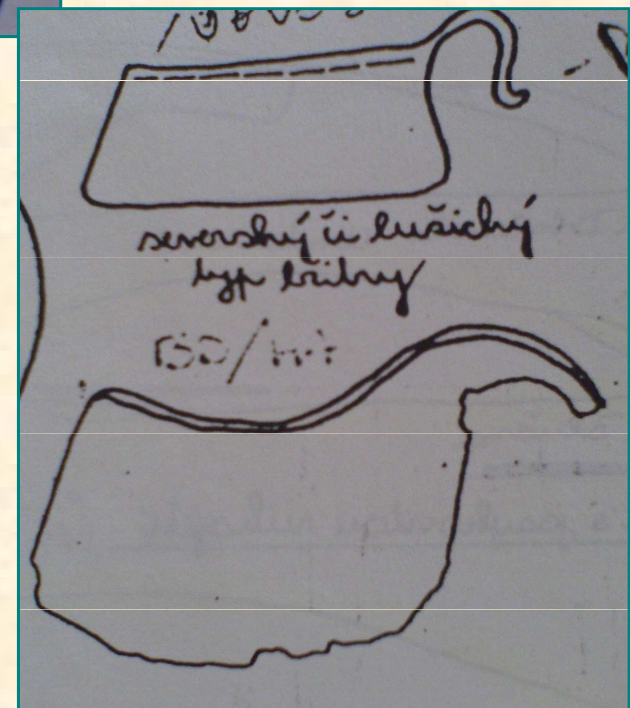 severský či lužický
typ břitvy
BD/HA